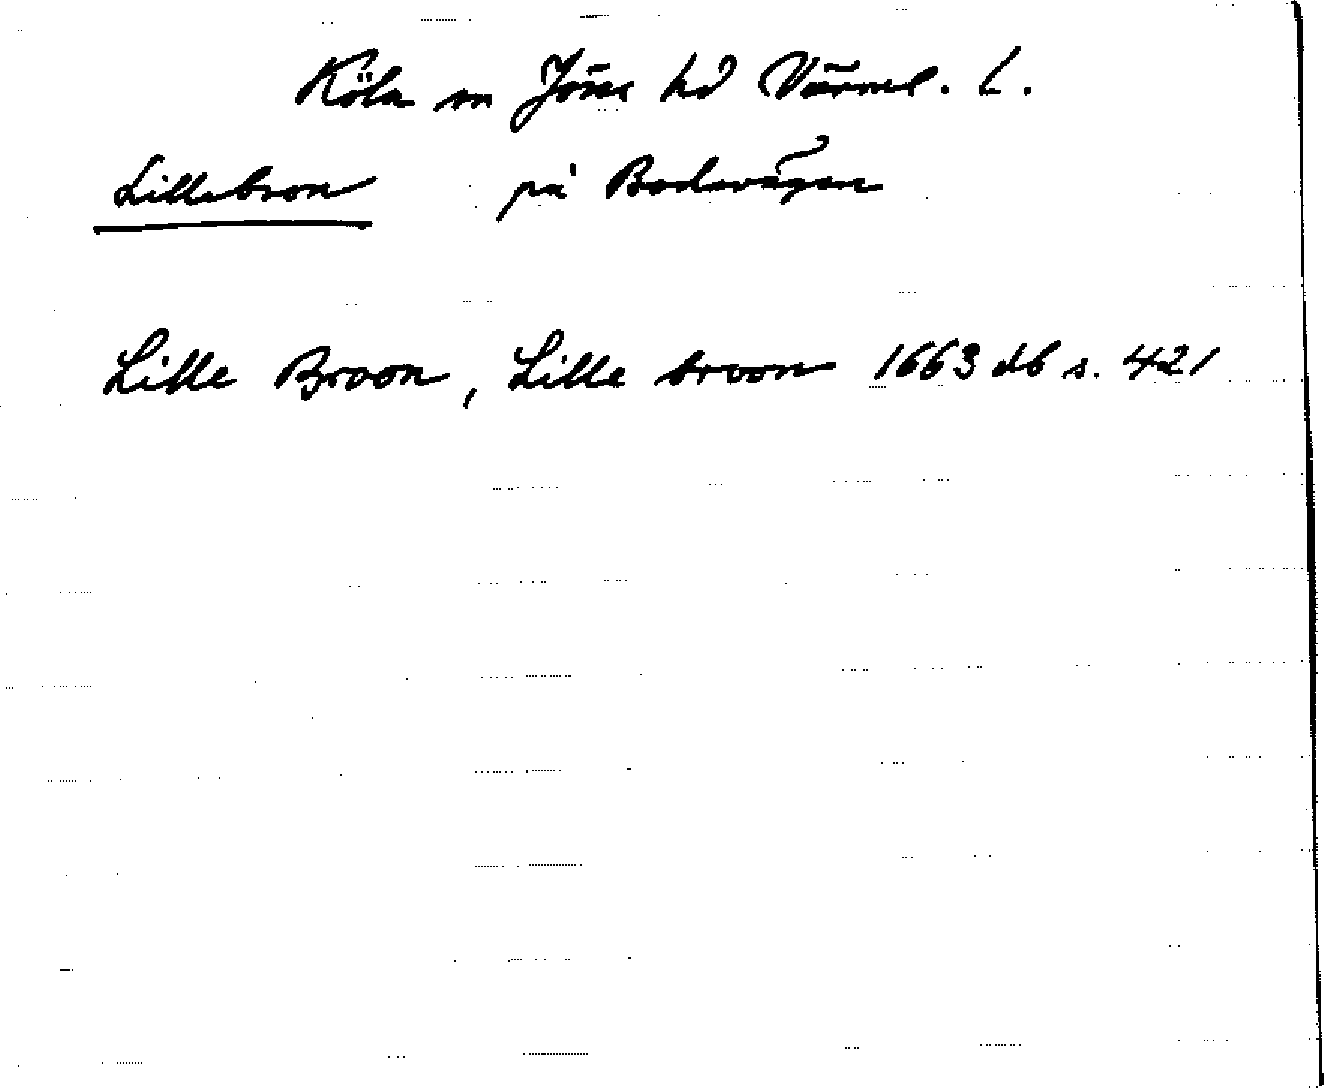 Köla sn Jösse hd Värml. l.
Lillebron på Bodavägen
Lille Broon, Lille broon 1663 db s. 421